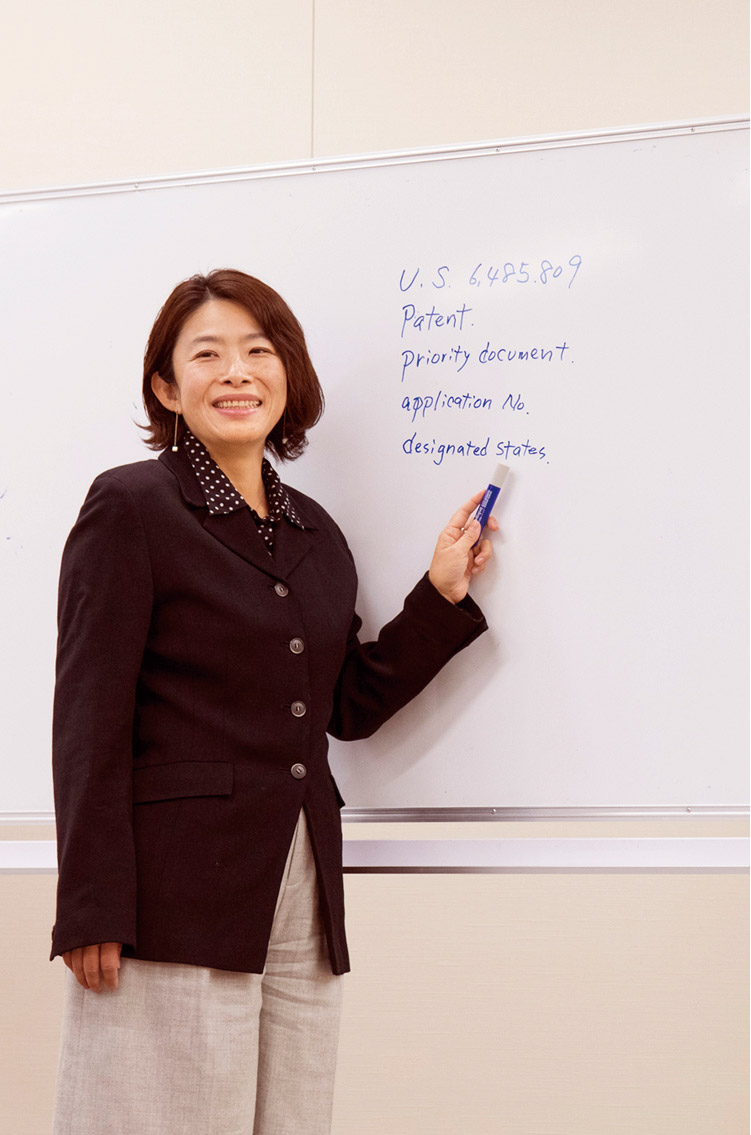 U.S. 6,485.809
Patent.
priority document.
application No.
designated states.